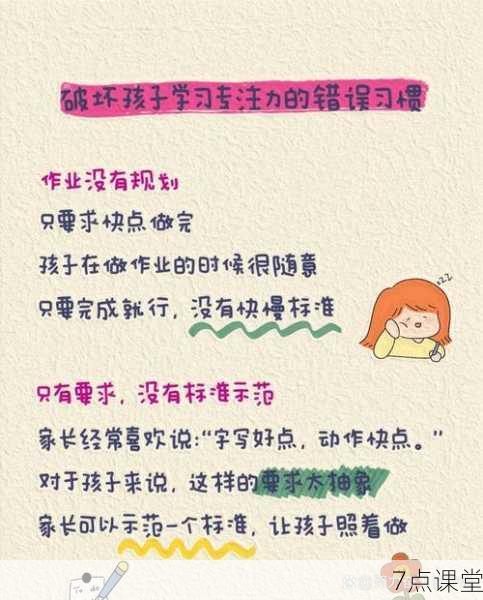 破坏孩子学习专注力的错误习惯
作业没有规划
只要求快点做完
孩子在做作业的时候很随意
只要完成就行，没有快慢标准
zZZ
只有要求，没有标准示范
家长经常喜欢说:“字写好点，动作快点。”
对于孩子来说，这样的要求太抽象
家长可以示范一个标准，让孩子照着做
7点课堂